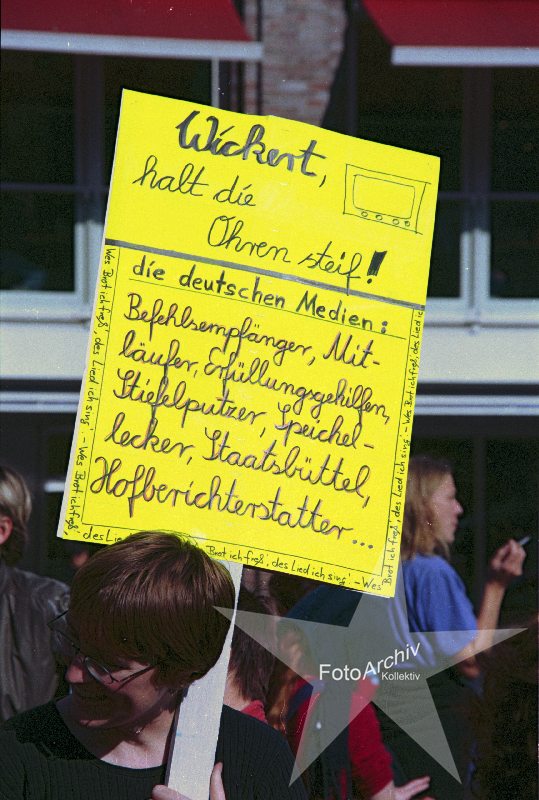 Wickert,
halt die
Ohren steif!
die deutschen Medien:
Befehlsempfänger, Mit-
läufer, Erfüllungsgehilfen,
Stiefelputzer, Speichel-
lecker, Staatsbüttel,
Hofberichterstatter...
Wes Brot ich freß', des Lied ich sing. - Wes Brot ich freß', des Lied ich sing. - Wes Brot ich freß', des Lied ic
des Lie
Brot ich freß', des Lied ich sing. - Wes
Brot ich freß', des Lied ich sing. - Wes Brot ich freß', des Lied ic
FotoArchiv
Kollektiv